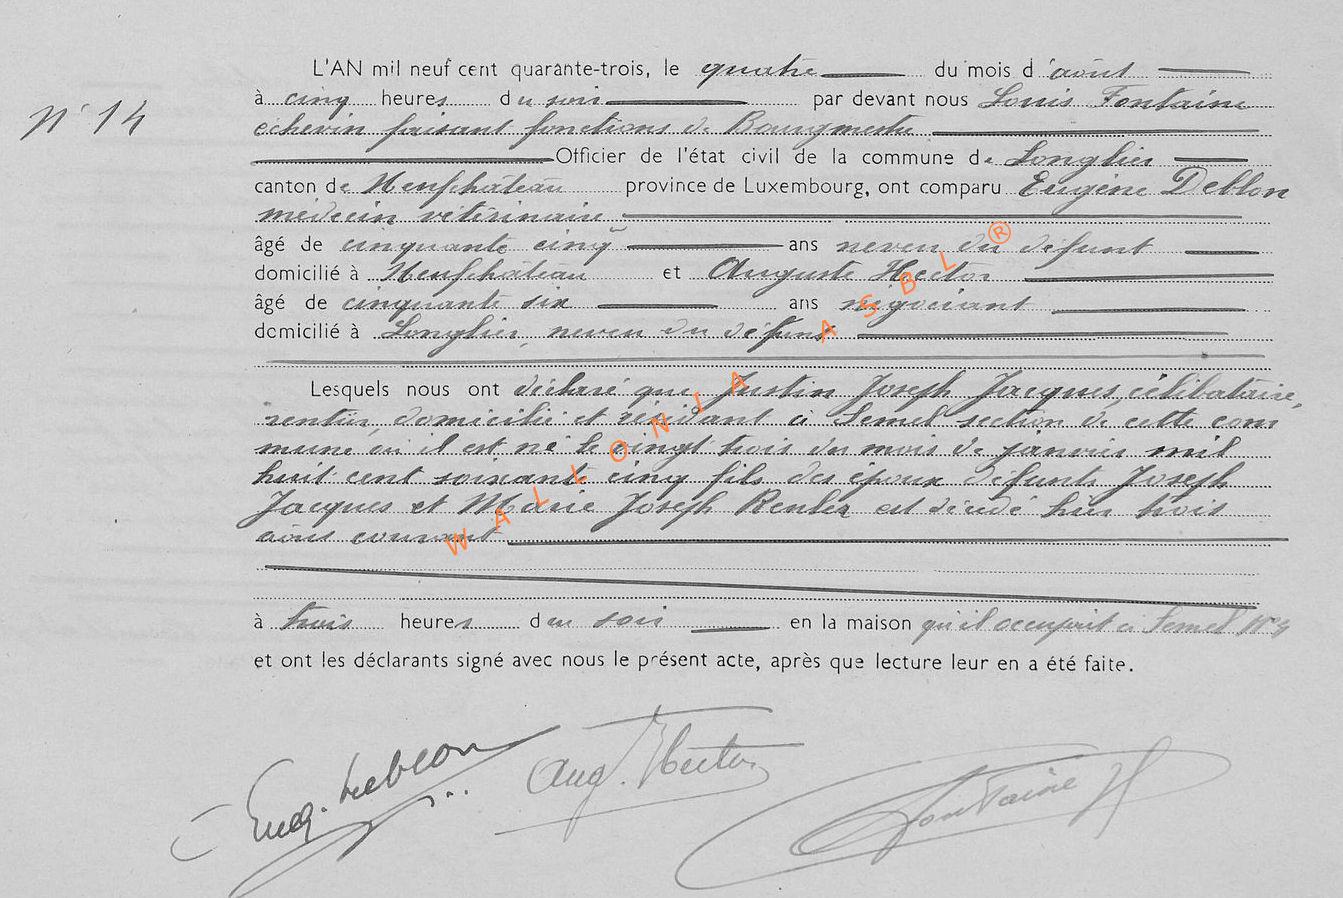 L'AN mil neuf cent quarante-trois, le quatre du mois d'août
N° 14
à cinq heures du soir par devant nous Louis Fontaine
échevin faisant fonctions de Bourgmestre
Officier de l'état civil de la commune de Longlier
canton de Neufchâteau province de Luxembourg, ont comparu Eugène Deblon
médecin vétérinaire
âgé de cinquante cinq ans neveu du défunt
domicilié à Neufchâteau et Auguste Hector
âgé de cinquante six ans négociant
domicilié à Longlier, neveu du défunt
Lesquels nous ont déclaré que Justin Joseph Jacques, célibataire,
rentier, domicilié et résidant à Semel section de cette com
mune où il est né le vingt trois du mois de janvier mil
huit cent soixante cinq fils des époux défunts Joseph
Jacques et Marie Joseph Renler est décédé hier trois
août courant
à trois heures du soir en la maison qu'il occupait à Semel N°
et ont les déclarants signé avec nous le présent acte, après que lecture leur en a été faite.
Eug. Deblon
Aug. Hector
Fontaine
WALLONIA ASBL ®